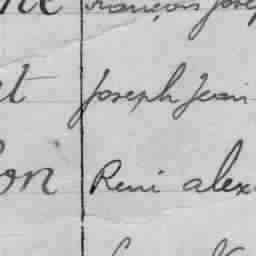 François Jose
et Joseph Jean
on René alex